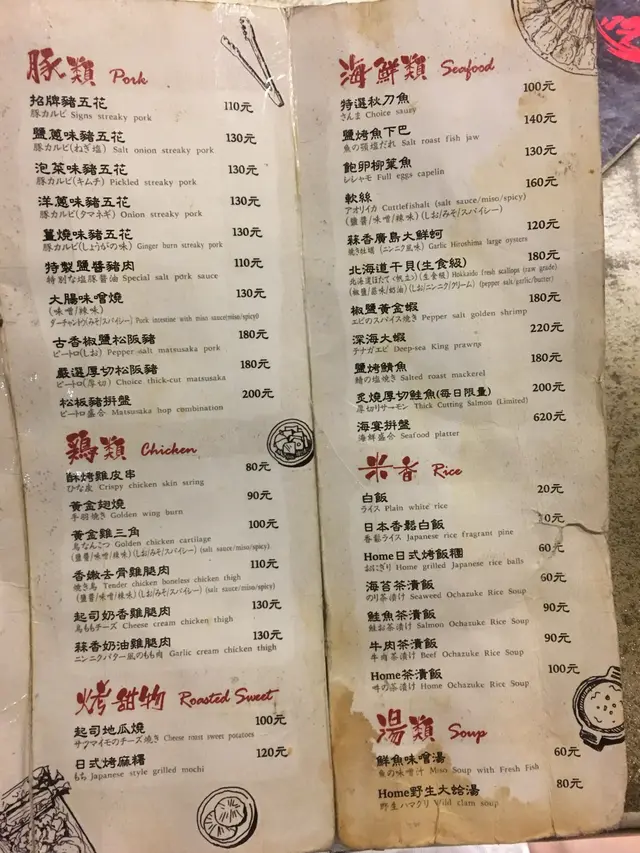 豚類 Pork
招牌豬五花 110元
豚カルビ Signs streaky pork
鹽蔥味豬五花 130元
豚カルビ(ねぎ塩) Salt onion streaky pork
泡菜味豬五花 130元
豚カルビ(キムチ) Pickled streaky pork
洋蔥味豬五花 130元
豚カルビ(タマネギ) Onion streaky pork
薑燒味豬五花 130元
豚カルビ(しょうがの味) Ginger burn streaky pork
特製鹽醬豬肉 110元
特別な塩豚醬油 Special salt pork sauce
大腸味噌燒 130元
(味噌/辣味)
ダーチャンドゥ(みそ/スパイシー) Pork intestine with miso sauce(miso/spicy)
古香椒鹽松阪豬 180元
ピートロ(しお) Pepper salt matsusaka pork
嚴選厚切松阪豬 180元
ピートロ(厚切) Choice thick-cut matsusaka
松板豬拼盤 200元
ピートロ盛合 Matsusaka hop combination
鶏類 Chicken
酥烤雞皮串 80元
ひな皮 Crispy chicken skin string
黃金翅燒 90元
手羽焼き Golden wing burn
黃金雞三角 100元
鳥なんこつ Golden chicken cartilage
(鹽醬/味噌/辣味)(しお/みそ/スパイシー) (salt sauce/miso/spicy)
香嫩去骨雞腿肉 110元
焼き鳥 Tender chicken boneless chicken thigh
(鹽醬/味噌/辣味)(しお/みそ/スパイシー) (salt sauce/miso/spicy)
起司奶香雞腿肉 130元
鳥ももチーズ Cheese cream chicken thigh
蒜香奶油雞腿肉 130元
ニンニクバター風のもも肉 Garlic cream chicken thigh
烤甜物 Roasted Sweet
起司地瓜燒 100元
サツマイモのチーズ焼き Cheese roast sweet potatoes
日式烤麻糬 120元
もち Japanese style grilled mochi
海鮮類 Seafood
特選秋刀魚 100元
さんま Choice saury
鹽烤魚下巴 140元
魚の顎塩だれ Salt roast fish jaw
飽卵柳葉魚 130元
レシャモ Full eggs capelin
軟絲 160元
アオリイカ Cuttlefishalt (salt sauce/miso/spicy)
(鹽醬/味噌/辣味)(しお/みそ/スパイシー)
蒜香廣島大鮮蚵 120元
焼き牡蠣 (ニンニク風味) Garlic Hiroshima large oysters
北海道干貝(生食級) 180元
北海道ほたて<帆立>(生食級) Hokkaido fresh scallops (raw grade)
(椒鹽/蒜味/奶油)(しお/ニンニク/クリーム) (pepper salt/garlic/butter)
椒鹽黃金蝦 180元
エビのスパイス焼き Pepper salt golden shrimp
深海大蝦 220元
テナガエビ Deep-sea King prawns
鹽烤鯖魚 180元
鯖の塩焼き Salted roast mackerel
炙燒厚切鮭魚(每日限量) 200元
厚切りサーモン Thick Cutting Salmon (Limited)
海宴拼盤 620元
海鮮盛合 Seafood platter
米香 Rice
白飯 20元
ライス Plain white rice
日本香鬆白飯 0元
香鬆ライス Japanese rice fragrant pine
Home日式烤飯糰 60元
おにぎり Home grilled Japanese rice balls
海苔茶漬飯 60元
のり茶漬け Seaweed Ochazuke Rice Soup
鮭魚茶漬飯 90元
鮭お茶漬け Salmon Ochazuke Rice Soup
牛肉茶漬飯 90元
牛肉茶漬け Beef Ochazuke Rice Soup
Home茶漬飯 100元
茶漬け Home Ochazuke Rice Soup
湯類 Soup
鮮魚味噌湯 60元
魚の味噌汁 Miso Soup with Fresh Fish
Home野生大蛤湯 80元
野生ハマグリ Wild clam soup